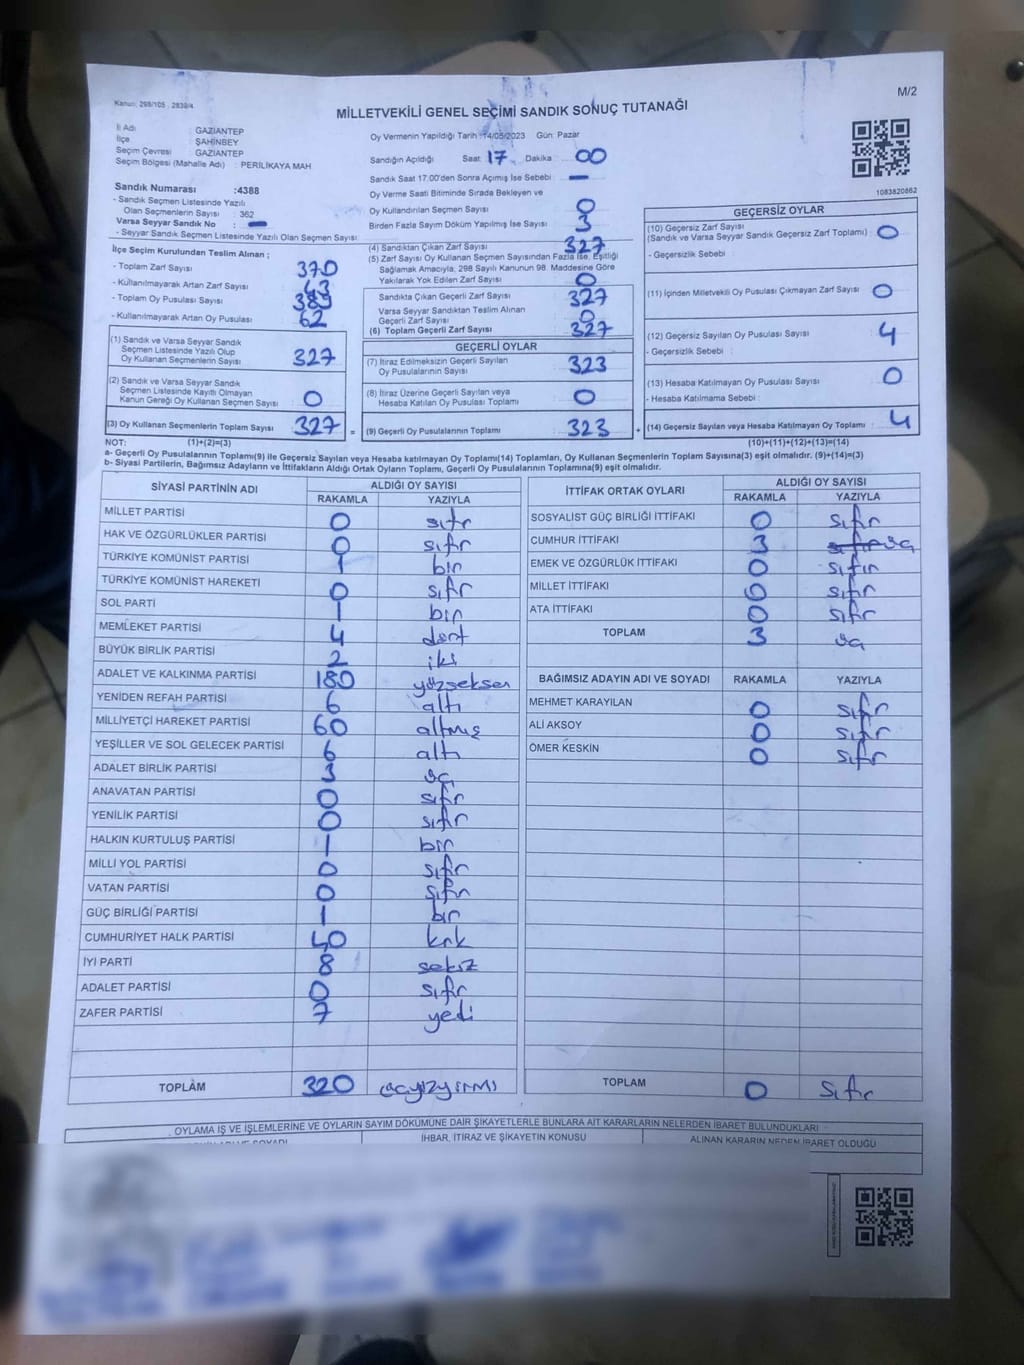 Kanun: 298/105 , 2839/4
M/2
MİLLETVEKİLİ GENEL SEÇİMİ SANDIK SONUÇ TUTANAĞI
İl Adı : GAZİANTEP
İlçe : ŞAHİNBEY
Seçim Çevresi : GAZİANTEP
Seçim Bölgesi (Mahalle Adı) : PERİLİKAYA MAH
Sandık Numarası :4388
- Sandık Seçmen Listesinde Yazılı
Olan Seçmenlerin Sayısı : 362
Varsa Seyyar Sandık No : —
- Seyyar Sandık Seçmen Listesinde Yazılı Olan Seçmen Sayısı :
Oy Vermenin Yapıldığı Tarih :14/05/2023 Gün: Pazar
Sandığın Açıldığı Saat: 17 Dakika : 00
Sandık Saat 17.00'den Sonra Açımış İse Sebebi : —
Oy Verme Saati Bitiminde Sırada Bekleyen ve
Oy Kullandırılan Seçmen Sayısı : 0
Birden Fazla Sayım Döküm Yapılmış İse Sayısı : 3
1083820862
İlçe Seçim Kurulundan Teslim Alınan ;
- Toplam Zarf Sayısı : 370
- Kullanılmayarak Artan Zarf Sayısı : 43
- Toplam Oy Pusulası Sayısı : 389
- Kullanılmayarak Artan Oy Pusulası : 62
(1) Sandık ve Varsa Seyyar Sandık
Seçmen Listesinde Yazılı Olup
Oy Kullanan Seçmenlerin Sayısı : 327
(2) Sandık ve Varsa Seyyar Sandık
Seçmen Listesinde Kayıtlı Olmayan
Kanun Gereği Oy Kullanan Seçmen Sayısı : 0
(3) Oy Kullanan Seçmenlerin Toplam Sayısı : 327 =
(4) Sandıktan Çıkan Zarf Sayısı : 327
(5) Zarf Sayısı Oy Kullanan Seçmen Sayısından Fazla İse, Eşitliği
Sağlamak Amacıyla, 298 Sayılı Kanunun 98. Maddesine Göre
Yakılarak Yok Edilen Zarf Sayısı : 0
Sandıkta Çıkan Geçerli Zarf Sayısı : 327
Varsa Seyyar Sandıktan Teslim Alınan
Geçerli Zarf Sayısı : 0
(6) Toplam Geçerli Zarf Sayısı : 327
GEÇERLİ OYLAR
(7) İtiraz Edilmeksizin Geçerli Sayılan
Oy Pusulalarının Sayısı : 323
(8) İtiraz Üzerine Geçerli Sayılan veya
Hesaba Katılan Oy Pusulası Toplamı : 0
(9) Geçerli Oy Pusulalarının Toplamı : 323 +
GEÇERSİZ OYLAR
(10) Geçersiz Zarf Sayısı
(Sandık ve Varsa Seyyar Sandık Geçersiz Zarf Toplamı) : 0
- Geçersizlik Sebebi :
(11) İçinden Milletvekili Oy Pusulası Çıkmayan Zarf Sayısı : 0
(12) Geçersiz Sayılan Oy Pusulası Sayısı : 4
- Geçersizlik Sebebi :
(13) Hesaba Katılmayan Oy Pusulası Sayısı : 0
- Hesaba Katılmama Sebebi :
(14) Geçersiz Sayılan veya Hesaba Katılmayan Oy Toplamı : 4
NOT: (1)+(2)=(3) (10)+(11)+(12)+(13)=(14)
a- Geçerli Oy Pusulalarının Toplamı(9) ile Geçersiz Sayılan veya Hesaba katılmayan Oy Toplamı(14) Toplamları, Oy Kullanan Seçmenlerin Toplam Sayısına(3) eşit olmalıdır. (9)+(14)=(3)
b- Siyasi Partilerin, Bağımsız Adayların ve İttifakların Aldığı Ortak Oyların Toplamı, Geçerli Oy Pusulalarının Toplamına(9) eşit olmalıdır.
SİYASİ PARTİNİN ADI ALDIĞI OY SAYISI
RAKAMLA YAZIYLA
MİLLET PARTİSİ 0 sıfır
HAK VE ÖZGÜRLÜKLER PARTİSİ 0 sıfır
TÜRKİYE KOMÜNİST PARTİSİ 1 bir
TÜRKİYE KOMÜNİST HAREKETİ 0 sıfır
SOL PARTİ 1 bir
MEMLEKET PARTİSİ 4 dört
BÜYÜK BİRLİK PARTİSİ 2 iki
ADALET VE KALKINMA PARTİSİ 180 yüzseksen
YENİDEN REFAH PARTİSİ 6 altı
MİLLİYETÇİ HAREKET PARTİSİ 60 altmış
YEŞİLLER VE SOL GELECEK PARTİSİ 6 altı
ADALET BİRLİK PARTİSİ 3 üç
ANAVATAN PARTİSİ 0 sıfır
YENİLİK PARTİSİ 0 sıfır
HALKIN KURTULUŞ PARTİSİ 1 bir
MİLLİ YOL PARTİSİ 0 sıfır
VATAN PARTİSİ 0 sıfır
GÜÇ BİRLİĞİ PARTİSİ 1 bir
CUMHURİYET HALK PARTİSİ 40 kırk
İYİ PARTİ 8 sekiz
ADALET PARTİSİ 0 sıfır
ZAFER PARTİSİ 7 yedi
TOPLAM 320 üçyüzyirmi
İTTİFAK ORTAK OYLARI ALDIĞI OY SAYISI
RAKAMLA YAZIYLA
SOSYALİST GÜÇ BİRLİĞİ İTTİFAKI 0 sıfır
CUMHUR İTTİFAKI 3 üç
EMEK VE ÖZGÜRLÜK İTTİFAKI 0 sıfır
MİLLET İTTİFAKI 0 sıfır
ATA İTTİFAKI 0 sıfır
TOPLAM 3 üç
BAĞIMSIZ ADAYIN ADI VE SOYADI RAKAMLA YAZIYLA
MEHMET KARAYILAN 0 sıfır
ALİ AKSOY 0 sıfır
ÖMER KESKİN 0 sıfır
TOPLAM 0 sıfır
OYLAMA İŞ VE İŞLEMLERİNE VE OYLARIN SAYIM DÖKÜMÜNE DAİR ŞİKAYETLERLE BUNLARA AİT KARARLARIN NELERDEN İBARET BULUNDUKLARI
İHBAR, İTİRAZ VE ŞİKAYETİN KONUSU ALINAN KARARIN NEDEN İBARET OLDUĞU